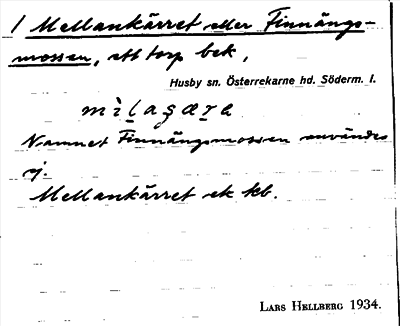 / Mellankärret eller Finnängs-
mossen, ett torp bek,
Husby sn. Österrekarne hd. Söderm. l.
Namnet Finnängsmossen användes
ej.
Mellankärret ek kb.
LARS HELLBERG 1934.